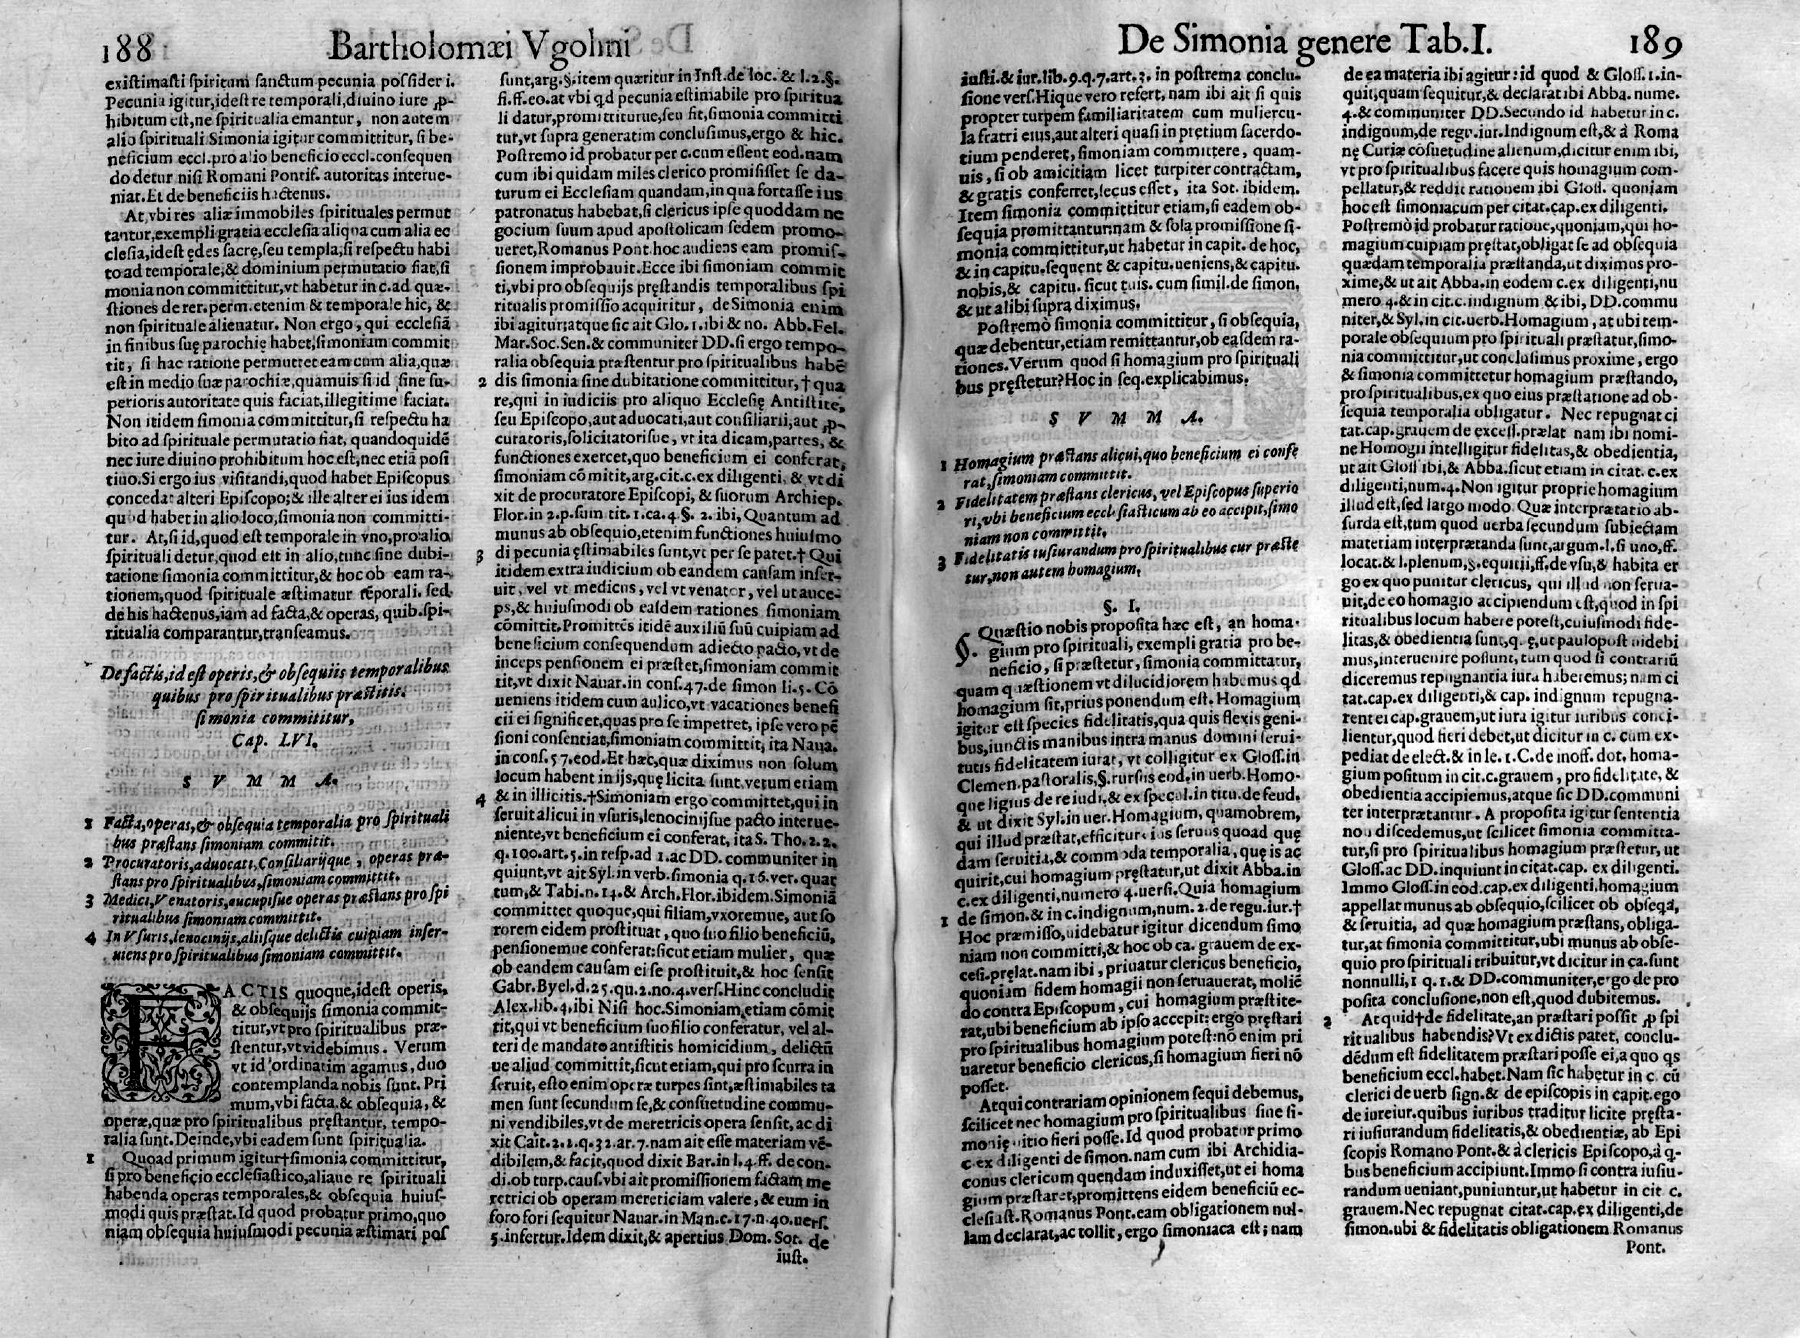 188 Bartholomæi Vgolini
existimasti spiritum sanctum pecunia possideri.
Pecunia igitur,idest re temporali,diuino iure ꝓ-
hibitum est,ne spiritualia emantur, non autem
alio spirituali Simonia igitur committitur, si be-
neficium eccl.pro alio beneficio eccl.consequen
do detur nisi Romani Pontif. autoritas interue-
niat.Et de beneficiis hactenus.
At,vbi res aliæ immobiles spirituales permut
tantur,exempli gratia ecclesia aliqua cum alia ec
clesia,idest ędes sacrę,seu templa,si respectu habi
to ad temporale,& dominium permutatio fiat,si
monia non committitur,vt habetur in c.ad quæ-
stiones de rer.perm.etenim & temporale hic, &
non spirituale alienatur. Non ergo, qui ecclesiā
in finibus suę parochię habet,simoniam commit
tit, si hac ratione permutet eam cum alia,quæ
est in medio suæ parochiæ,quamuis si id sine su-
perioris autoritate quis faciat,illegitime faciat.
Non itidem simonia committitur,si respectu ha
bito ad spirituale permutatio fiat, quandoquidē
nec iure diuino prohibitum hoc est,nec etiā posi
tiuo.Si ergo ius visitandi,quod habet Episcopus
concedat alteri Episcopo;& ille alter ei ius idem
quod habet in alio loco,simonia non committi-
tur. At,si id,quod est temporale in vno,pro alio
spirituali detur,quod est in alio,tunc sine dubi-
tatione simonia committitur,& hoc ob eam ra-
tionem,quod spirituale æstimatur tēporali. sed
de his hactenus,iam ad facta,& operas, quib.spi-
ritualia comparantur,transeamus.
De factis,id est operis,& obsequiis temporalibus
quibus pro spiritualibus præstitis,
simonia committitur,
Cap. LVI.
S V M M A.
1 Facta,operas,& obsequia temporalia pro spirituali
bus præstans simoniam committit.
2 Procuratoris,aduocati,Consiliarijque, operas præ-
stans pro spiritualibus,simoniam committit.
3 Medici,Venatoris,aucupisue operas præstans pro spi
ritualibus simoniam committit.
4 In Vsuris,lenocinijs,aliisque delictis cuipiam inser-
uiens pro spiritualibus simoniam committit.
FACTIS quoque,idest operis,
& obsequijs simonia commit-
titur,vt pro spiritualibus præ-
stentur,vt videbimus. Verum
vt id ordinatim agamus, duo
contemplanda nobis sunt. Pri
mum,vbi facta.& obsequia, &
operæ,quæ pro spiritualibus pręstantur, tempo-
ralia sunt.Deinde,vbi eadem sunt spiritualia.
1 Quoad primum igitur†simonia committitur,
si pro beneficio ecclesiastico,aliaue re spirituali
habenda operas temporales,& obsequia huius-
modi quis præstat.Id quod probatur primo,quo
niam obsequia huiusmodi pecunia æstimari pos
sunt,arg.§.item quæritur in Inst.de loc. & l.2.§.
si.ff.eo.at vbi qd pecunia estimabile pro spiritua
li datur,promittiturue,seu fit,simonia committi
tur,vt supra generatim conclusimus,ergo & hic.
Postremo id probatur per c.cum essent eod.nam
cum ibi quidam miles clerico promisisset se da-
turum ei Ecclesiam quandam,in qua fortasse ius
patronatus habebat,si clericus ipse quoddam ne
gocium suum apud apostolicam sedem promo-
ueret,Romanus Pont.hoc audiens eam promis-
sionem improbauit.Ecce ibi simoniam commit
ti,vbi pro obsequijs pręstandis temporalibus spi
ritualis promissio acquiritur, de Simonia enim
ibi agitur:atque sic ait Glo.1.ibi & no. Abb.Fel.
Mar.Soc.Sen.& communiter DD.si ergo tempo-
ralia obsequia præstentur pro spiritualibus habē
2 dis simonia sine dubitatione committitur,† qua
re,qui in iudiciis pro aliquo Ecclesię Antistite,
seu Episcopo,aut aduocati,aut consiliarii,aut ꝓ-
curatoris,solicitatorisue, vt ita dicam,partes, &
functiones exercet,quo beneficium ei conferat,
simoniam cōmitit,arg.cit.c.ex diligenti, & vt di
xit de procuratore Episcopi, & suorum Archiep.
Flor.in 2.p.sum tit.1.ca.4.§. 2. ibi, Quantum ad
munus ab obsequio,etenim functiones huiusmo
3 di pecunia ęstimabiles sunt,vt per se patet.† Qui
itidem extra iudicium ob eandem causam inser-
uit, vel vt medicus, vel vt venator, vel ut auce-
ps,& huiusmodi ob easdem rationes simoniam
cōmittit.Promittēs itidē auxiliū suū cuipiam ad
beneficium consequendum adiecto pacto,vt de-
inceps pensionem ei præstet,simoniam commit
tit,vt dixit Nauar.in cons.47.de simon li.5. Cō
ueniens itidem cum aulico,vt vacationes benefi
cii ei significet,quas pro se impetret, ipse vero pē
sioni consentiat,simoniam committit, ita Naua.
in cons.57.eod.Et hæc,quæ diximus non solum
locum habent in ijs,quę licita sunt,verum etiam
4 & in illicitis.†Simoniam ergo committet,qui in
seruit alicui in vsuris,lenocinijsue pacto interue-
niente,vt beneficium ei conferat, ita S. Tho. 2.2.
q.100.art.5.in resp.ad 1.ac DD. communiter in
quiunt,vt ait Syl.in verb.simonia q.16.ver. quar
tum,& Tabi.n.14.& Arch.Flor.ibidem.Simoniā
committet quoque,qui filiam,vxoremue, aut so
rorem eidem prostituat, quo suo filio beneficiū,
pensionemue conferat:sicut etiam mulier, quæ
ob eandem causam ei se prostituit,& hoc sensit
Gabr.Byel.d.25.qu.2.no.4.vers.Hinc concludit
Alex.lib.4.ibi Nisi hoc.Simoniam,etiam cōmit
tit,qui vt beneficium suo filio conferatur, vel al-
teri de mandato antistitis homicidium, delictū
ue aliud committit,sicut etiam,qui pro scurra in
seruit, esto enim operæ turpes sint,æstimabiles ta
men sunt secundum se,& consuetudine commu-
ni vendibiles,vt de meretricis opera sensit, ac di
xit Cait.2.2.q.32.ar.7.nam ait esse materiam vē-
dibilem,& facit,quod dixit Bar.in l.4.ff. de con-
di.ob turp.caus.vbi ait promissionem factam me
retrici ob operam mereticiam valere, & eum in
foro fori sequitur Nauar.in Man.c.17.n.40.uers.
5.infertur.Idem dixit,& apertius Dom. Sot. de
iust.
De Simonia genere Tab.I. 189
iusti.& iur.lib.9.q.7.art.3. in postrema conclu-
sione vers.Hique vero refert, nam ibi ait si quis
propter turpem familiaritatem cum muliercu-
la fratri eius,aut alteri quasi in pretium sacerdo-
tium penderet, simoniam committere, quam-
uis, si ob amicitiam licet turpiter contractam,
& gratis conferret,secus esset, ita Sot. ibidem.
Item simonia committitur etiam,si eadem ob-
sequia promittantur:nam & sola promissione si-
monia committitur,ut habetur in capit. de hoc,
& in capitu.sequent & capitu.ueniens,& capitu.
nobis,& capitu. sicut tuis. cum simil.de simon.
& ut alibi supra diximus.
Postremò simonia committitur, si obsequia,
quæ debentur,etiam remittantur,ob easdem ra-
tiones.Verum quod si homagium pro spirituali
bus pręstetur?Hoc in seq.explicabimus.
S V M M A.
1 Homagium præstans alicui,quo beneficium ei confe
rat,simoniam committit.
2 Fidelitatem præstans clericus, vel Episcopus superio
ri,vbi beneficium ecclesiasticum ab eo accipit,simo
niam non committit.
3 Fidelitatis iusiurandum pro spiritualibus cur præste
tur,non autem homagium.
§. I.
§. Quæstio nobis proposita hæc est, an homa-
gium pro spirituali, exempli gratia pro be-
neficio, si præstetur, simonia committatur,
quam quæstionem vt dilucidiorem habemus qd
homagium sit,prius ponendum est. Homagium
igitur est species fidelitatis,qua quis flexis geni-
bus,iunctis manibus intra manus domini serui-
tutis fidelitatem iurat, vt colligitur ex Gloss.in
Clemen.pastoralis,§.rursus eod.in uerb. Homo-
que ligius de re iudi.& ex specul.in titu.de feud.
& ut dixit Syl.in uer.Homagium, quamobrem,
qui illud præstat,efficitur eius seruus quoad quę
dam seruitia,& commoda temporalia, quę is ac
quirit,cui homagium pręstatur,ut dixit Abba.in
c.ex diligenti,numero 4.uersi.Quia homagium
1 de simon.& in c.indignum,num.2.de regu.iur.†
Hoc præmisso,uidebatur igitur dicendum simo
niam non committi,& hoc ob ca. grauem de ex-
cesi.pręlat.nam ibi, priuatur clericus beneficio,
quoniam fidem homagii non seruauerat, moliē
do contra Episcopum, cui homagium præstite-
rat,ubi beneficium ab ipso accepit: ergo pręstari
pro spiritualibus homagium potest:nō enim pri
uaretur beneficio clericus,si homagium fieri nō
posset.
Atqui contrariam opinionem sequi debemus,
scilicet nec homagium pro spiritualibus sine si-
monię uitio fieri posse.Id quod probatur primo
c.ex diligenti de simon.nam cum ibi Archidia-
conus clericum quendam induxisset,ut ei homa
gium præstaret,promittens eidem beneficiū ec-
clesiast.Romanus Pont.eam obligationem nul-
lam declarat,ac tollit, ergo simoniaca est; nam
de ea materia ibi agitur:id quod & Gloss.1.in-
quit,quam sequitur,& declarat ibi Abba. nume.
4.& communiter DD.Secundo id habetur in c.
indignum,de regu.iur.Indignum est,& à Roma
nę Curiæ cōsuetudine alienum,dicitur enim ibi,
vt pro spiritualibus facere quis homagium com-
pellatur,& reddit rationem ibi Glosl. quoniam
hoc est simoniacum per citat.cap.ex diligenti.
Postremò id probatur ratione,quoniam,qui ho-
magium cuipiam pręstat,obligat se ad obsequia
quædam temporalia præstanda,ut diximus pro-
xime,& ut ait Abba.in eodem c.ex diligenti,nu
mero 4.& in cit.c.indignum & ibi, DD.commu
niter,& Syl.in cit.uerb.Homagium, at ubi tem-
porale obsequium pro spirituali præstatur,simo-
nia committitur,ut conclusimus proxime, ergo
& simonia committetur homagium præstando,
pro spiritualibus,ex quo eius præstatione ad ob-
sequia temporalia obligatur. Nec repugnat ci
tat.cap.grauem de excess.prælat nam ibi nomi-
ne Homogii intelligitur fidelitas,& obedientia,
ut ait Gloss ibi,& Abba.sicut etiam in citat. c.ex
diligenti,num.4.Non igitur proprie homagium
illud est,sed largo modo. Quæ interprætatio ab-
surda est,tum quod uerba secundum subiectam
materiam interprætanda sunt,argum.l.si uno,ff.
locat.& l.plenum,§.equitii,ff.de vsu,& habita er
go ex quo punitur clericus, qui illud non serua-
uit,de eo homagio accipiendum est,quod in spi
ritualibus locum habere potest,cuiusmodi fide-
litas,& obedientia sunt,q. ę,ut paulopost uidebi
mus,interuenire possunt, tum quod si contrariū
diceremus repugnantia iura haberemus; nam ci
tat.cap.ex diligenti,& cap. indignum repugna-
rent ei cap.grauem,ut iura igitur iuribus conci-
lientur,quod fieri debet,ut dicitur in c. cum ex-
pediat de elect.& in le.1.C.de inoff.dot, homa-
gium positum in cit.c.grauem, pro fidelitate, &
obedientia accipiemus,atque sic DD.communi
ter interprætantur. A proposita igitur sententia
non discedemus,ut scilicet simonia committa-
tur,si pro spiritualibus homagium præstetur, ut
Gloss.ac DD.inquiunt in citat.cap. ex diligenti.
Immo Gloss.in eod.cap.ex diligenti,homagium
appellat munus ab obsequio,scilicet ob obsequia,
& seruitia, ad quæ homagium præstans, obliga-
tur,at simonia committitur,ubi munus ab obse-
quio pro spirituali tribuitur,vt dicitur in ca.sunt
nonnulli,1 q.1.& DD.communiter,ergo de pro
posita conclusione,non est,quod dubitemus.
2 At quid†de fidelitate,an præstari possit ꝓ spi
ritualibus habendis?Vt ex dictis patet, conclu-
dēdum est fidelitatem præstari posse ei,a quo qs
beneficium eccl.habet.Nam sic habetur in c. cū
clerici de uerb sign.& de episcopis in capit.ego
de iureiur.quibus iuribus traditur licite pręsta-
ri iusiurandum fidelitatis,& obedientiæ, ab Epi
scopis Romano Pont.& à clericis Episcopo,à q-
bus beneficium accipiunt.Immo si contra iusiu-
randum ueniant,puniuntur,ut habetur in cit c.
grauem.Nec repugnat citat.cap.ex diligenti,de
simon.ubi & fidelitatis obligationem Romanus
Pont.